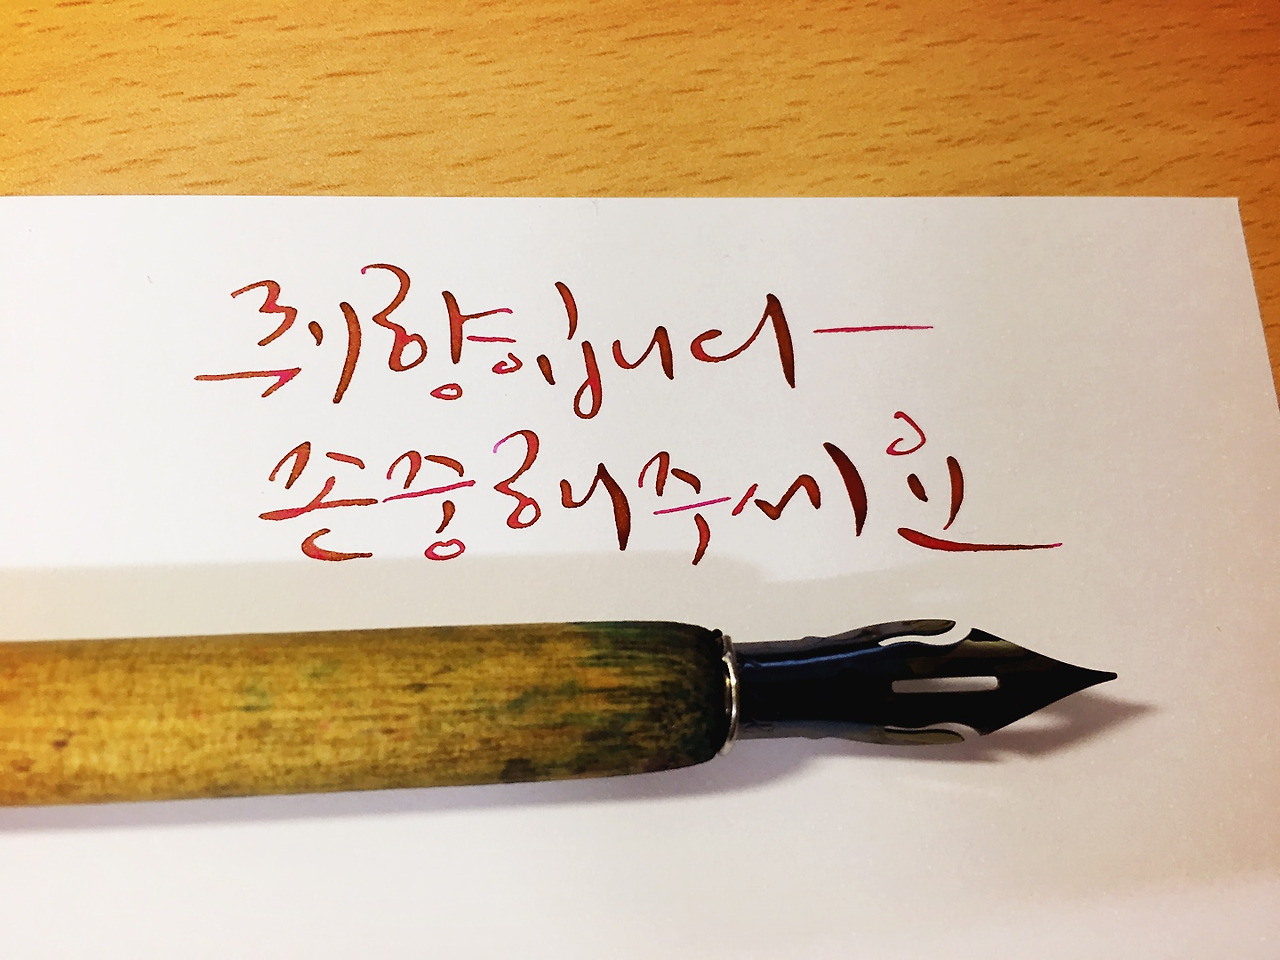 취향입니다
존중해주세요